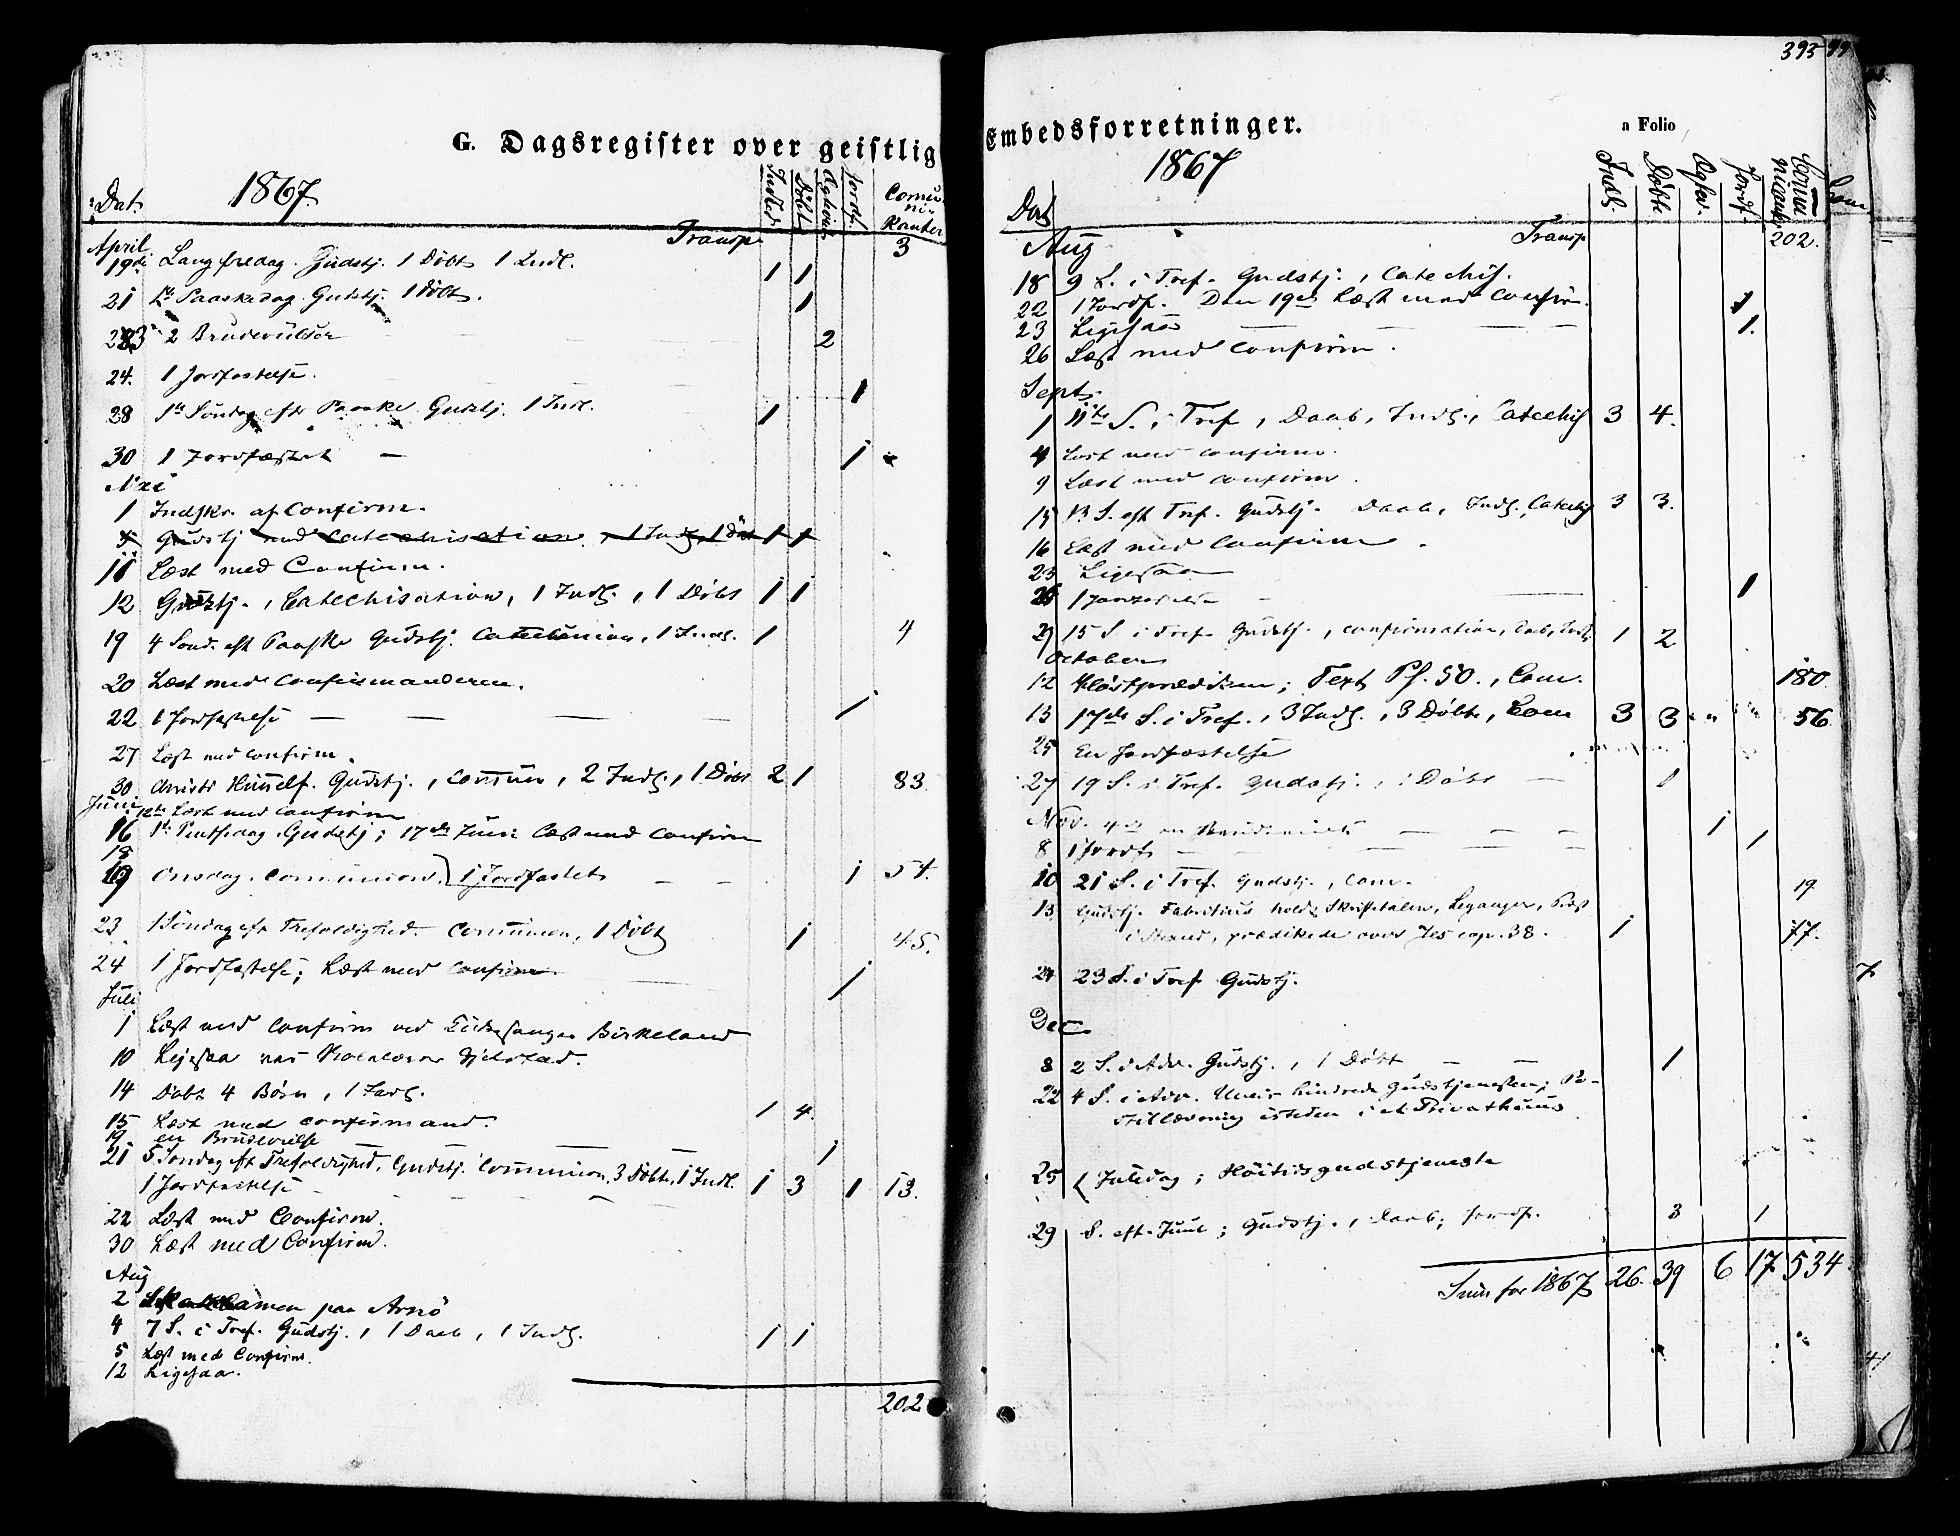 G. Dagsregister over geistlig
1867.
Dat.
Indled. Döbte Jordf. Comuni-kanter
Transp 3
April
19de Langfredag. Gudstj. 1 Döbt 1 Indl. 1 1
21 Paaskedag. Gudstj. 1 Döbt. 1
23 2 Brudevielser 2
24. 1 Jordfæstelse. 1
28 1ste Söndag eft Paaske Gudstj. 1 Indl. 1
30 1 Jordfæstet 1
Mai
1 Indskr. af Confirm.
Gudstj med Catechisation, 1 Indl, 1 Döbt 1 1
11 Læst med Confirm.
12 Gudstj., Catechisation, 1 Indl., 1 Döbt 1 1
19 4 Sönd. eft Paaske Gudstj. 1 Indl. 1 4
20 Læst med Confirmanderne.
22 1 Jordfæstelse 1
27 Læst med Confirm.
30 Christi Himelf. Gudstj., Comun, 2 Indl., 1 Döbt 2 1 83.
Juni 12te Læst med Confirm
16 1ste Pintsedag. Gudstj; 17de Juni Læst med Confirm
18
19 Onsdag. Comunion. 1 Jordfæstet 1 54.
23 1 Söndag eft Trefoldighed. Comunion, 1 Döbt 1 45.
24 1 Jordfæstelse; Læst med Confirm. 1
Juli
1 Læst med Confirm ved Kirkesanger Birkeland
10 Ligesaa ved
14 Döbt 4 Börn, 1 Indl.
1 4.
15 Læst med Confirmand.
19 en Brudevielse 1
21 5 Söndag eft Trefoldighed, Gudstj. Comunion, 3 Döbte, 1 Indl.
1 Jordfæstelse 1 3 1 13.
22 Læst med Confirm.
30 Læst med Confirm.
Aug
2 paa Arnö
4 7 S. i Tref. Gudstj., 1 Daab, 1 Indl. 1 1
5 Læst med Confirm.
12 Ligesaa.
202.
393
Embedsforretninger.
a Folio
1867
Dat
Indl. Döbte Jordf. Comunicanter
Transp 202.
Aug
18 9 S. i Tref. Gudstj., Catechis.
22 1 Jordf. Den 19de Læst med Confirm. 1
23 Ligesaa 1.
26 Læst med Confirm.
Sept.
1 11te S. i Tref, Daab, Indl., Catechis 3 4.
4 Læst med Confirm.
9 Læst med Confirm
15 13 S. eft Tref. Gudstj. Daab, Indl. Catechis 3 3.
16 Læst med Confirm.
23 Ligesaa
26 1 Jordfæstelse 1
29 15 S. i Tref. Gudstj., Confirmation, Daab, Indl. 1 2
October
12 Höstprædiken; Text Ps. 50., Com. 180
13 17de S. i Tref., 3 Indl., 3 Döbte, Com 3 3 " " " " 56
25 En Jordfæstelse
27 19 S. i Tref. Gudstj., 1 Döbt 1
Nov. 4de en Brudevielse 1
8 1 Jordf. 1
10 21 S. i Tref. Gudstj., Com. 19
13 Gudstj. Fabritius holdt Skriftetalen, Leganger, Præst
i Strand, prædikede over Jes cap. 38. 1 77.
24 23 S. i Tref Gudstj.
Dec
8 2 S. i Adv. Gudstj., 1 Döbt 1
22 4 S. i Adv. Uveir hindrede Gudstjenesten; Po-
stillæsning isteden i et Privathuus
25 Juledag; Höitidsgudstjeneste
29 S. eft. Juul; Gudstj., Daab; Jordf. 3 1
Sum for 1867 26. 39 6 17 534